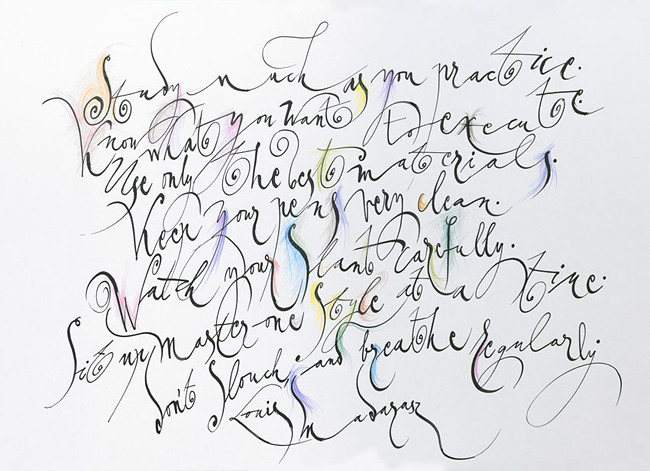 Study much as you practice.
Know what you want to execute.
Use only the best materials.
Keep your pens very clean.
Watch your slant carefully.
Master one style at a time.
Sit up, don't slouch, and breathe regularly
Louis Madarasz